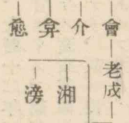 會
介
弇
愈
老成
湘
滂